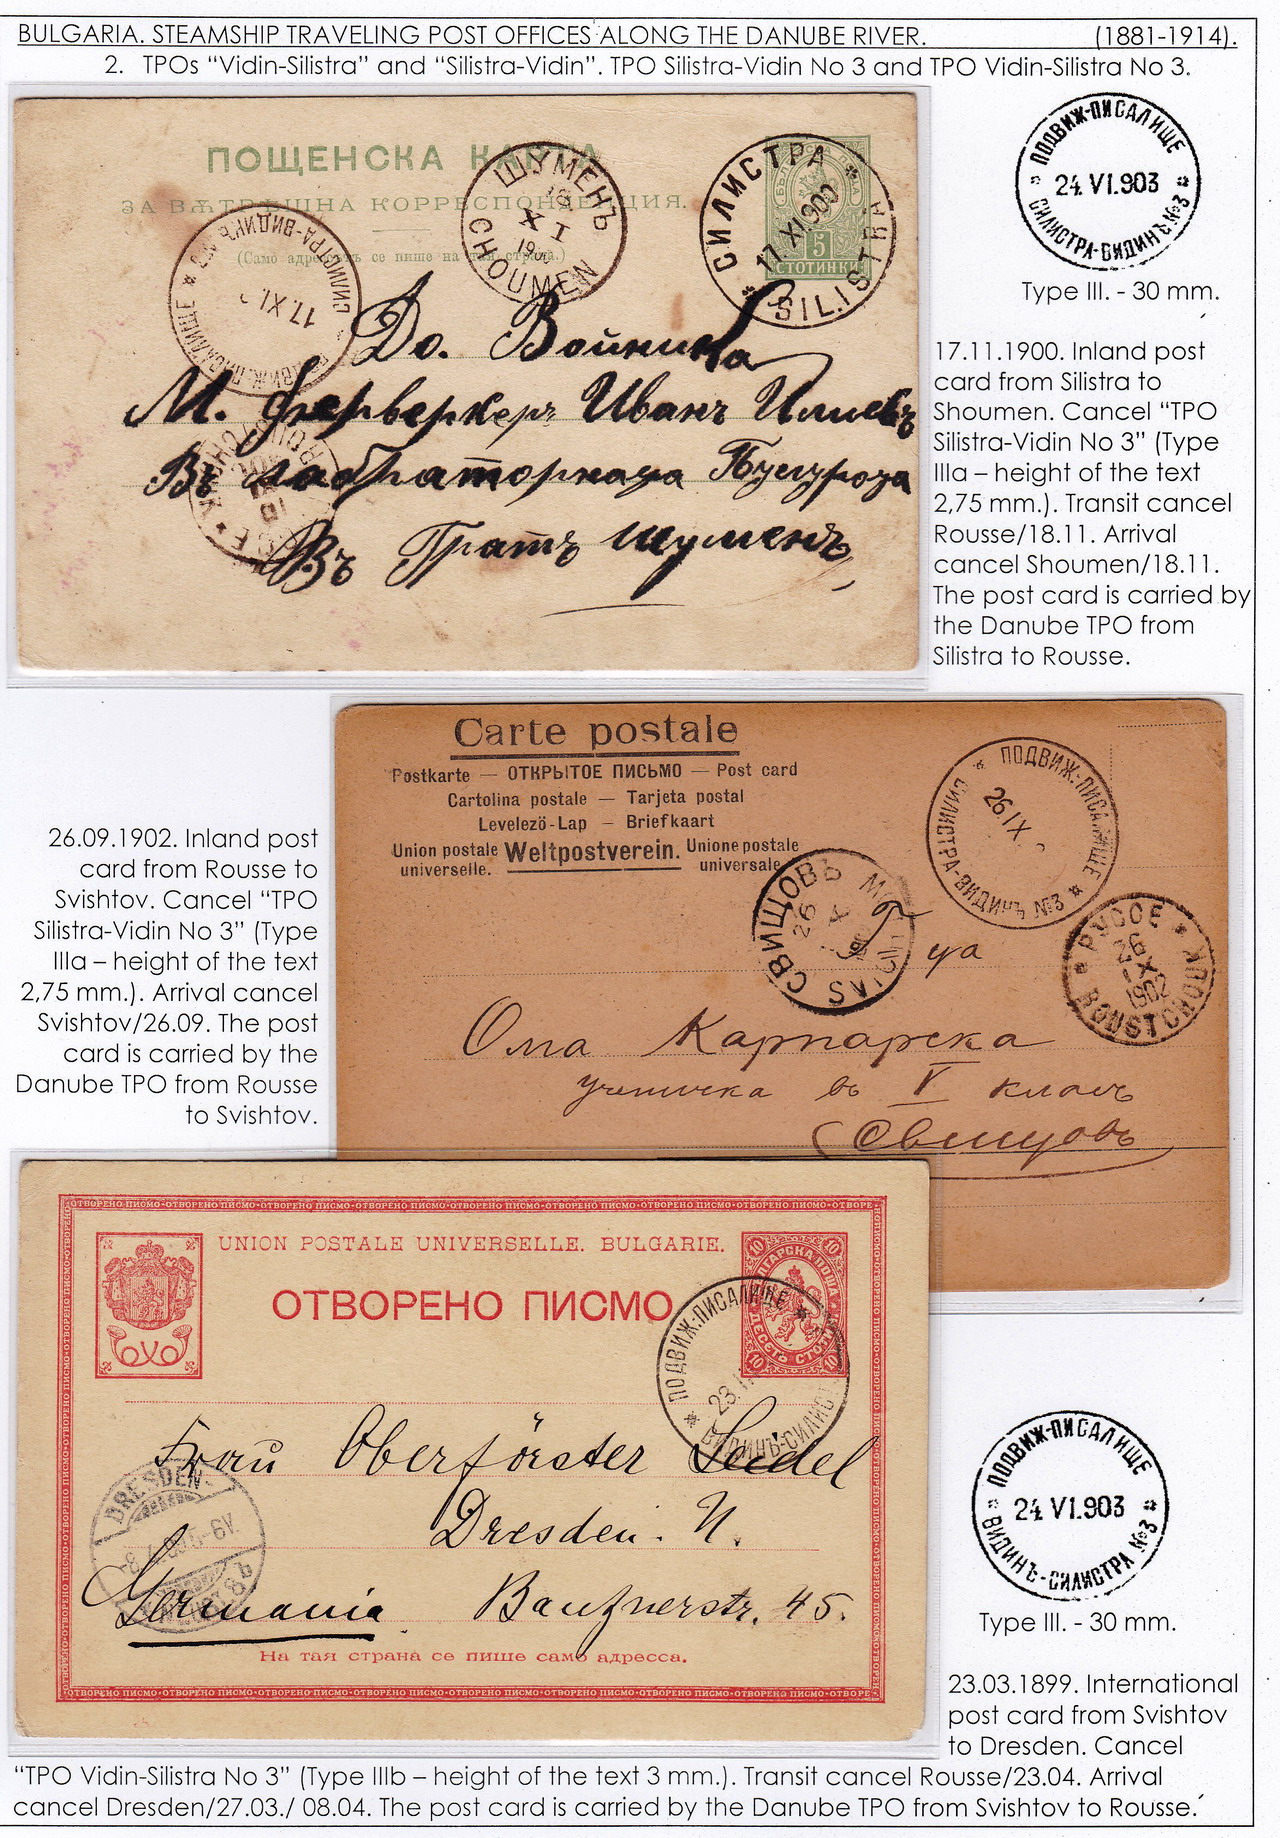 BULGARIA. STEAMSHIP TRAVELING POST OFFICES ALONG THE DANUBE RIVER. (1881-1914).
2. TPOs “Vidin-Silistra” and “Silistra-Vidin”. TPO Silistra-Vidin No 3 and TPO Vidin-Silistra No 3.
ПОДВИЖ-ПИСАЛИЩЕ
24 VI.903
СИЛИСТРА-ВИДИНЪ №3
Type III. - 30 mm.
ПОЩЕНСКА КАРТА
ЗА ВѪТРѢШНА КОРРЕСПОНДЕНЦИЯ.
(Само адресътъ се пише на тая страна.)
5
СТОТИНКИ
ШУМЕНЪ
XI
CHOUMEN
СИЛИСТРА
17. XI.900
SILISTRA
ПОДВИЖ-ПИСАЛИЩЕ
17. XI.
СИЛИСТРА-ВИДИНЪ №3
До. Войника
М. ферверкеръ Иванъ Илиевъ
Въ
Въ Гратъ Шуменъ
17.11.1900. Inland post
card from Silistra to
Shoumen. Cancel “TPO
Silistra-Vidin No 3” (Type
IIIa – height of the text
2,75 mm.). Transit cancel
Rousse/18.11. Arrival
cancel Shoumen/18.11.
The post card is carried by
the Danube TPO from
Silistra to Rousse.
Carte postale
Postkarte — ОТКРЫТОЕ ПИСЬМО — Post card
Cartolina postale — Tarjeta postal
Levelezö-Lap — Briefkaart
Union postale universelle. Weltpostverein. Unione postale universale.
ПОДВИЖ-ПИСАЛИЩЕ
26 IX
СИЛИСТРА-ВИДИНЪ №3
СВИЩОВЪ
26
РУССЕ
26
IX
1902
ROUSTCHOUK
Ома Карпарска
ученичка въ V класъ
Свищовъ
26.09.1902. Inland post
card from Rousse to
Svishtov. Cancel “TPO
Silistra-Vidin No 3” (Type
IIIa – height of the text
2,75 mm.). Arrival cancel
Svishtov/26.09. The post
card is carried by the
Danube TPO from Rousse
to Svishtov.
UNION POSTALE UNIVERSELLE. BULGARIE.
ОТВОРЕНО ПИСМО
10 10
БЪЛГАРСКА ПОЩА
10 10
ПОДВИЖ-ПИСАЛИЩЕ
23.
ВИДИНЪ-СИЛИСТ
Frau Oberförster Seidel
Dresden. N.
Germania Bautznerstr. 45.
DRESDEN
На тая страна се пише само адресса.
ПОДВИЖ-ПИСАЛИЩЕ
24 VI.903
ВИДИНЪ-СИЛИСТРА №3
Type III. - 30 mm.
23.03.1899. International
post card from Svishtov
to Dresden. Cancel
“TPO Vidin-Silistra No 3” (Type IIIb – height of the text 3 mm.). Transit cancel Rousse/23.04. Arrival
cancel Dresden/27.03./ 08.04. The post card is carried by the Danube TPO from Svishtov to Rousse.